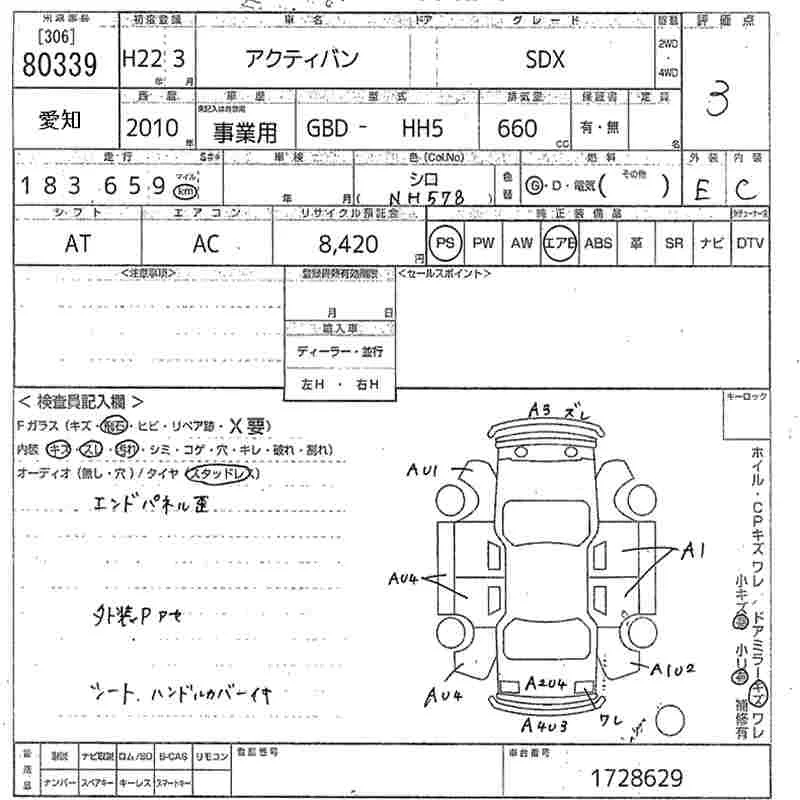 初度登録 車名 ドア グレード 評価点
[306]
80339 H22 3 アクティバン SDX 2WD・4WD 3
年 月
西暦 車歴 型式 排気量 保証書 定員
愛知 2010年 事業用 GBD - HH5 660 CC 有・無 名
走行 車検 色(Col.No) 色替 燃料 外装 内装
183659 マイル km 年 月 シロ (NH578) G・D・電気( その他 ) E C
シフト エアコン リサイクル預託金 純正装備品
AT AC 8,420円 PS PW AW エアB ABS 革 SR ナビ DTV
<注意事項> 登録書類有効期限 <セールスポイント>
月 日
輸入車
ディーラー・並行
左H ・ 右H
<検査員記入欄> キーロック
Fガラス(キズ・飛石・ヒビ・リペア跡・X要)
内装 (キズ・スレ・汚れ・シミ・コゲ・穴・キレ・破れ・割れ)
オーディオ(無し・穴)/タイヤ(スタッドレス)
エンドパネル歪
外装Pアセ
シート、ハンドルカバー付
A3 ズレ
AU1
A1
AU4
A1U2
AU4
A2U4
A4U3 ワレ
ホイル・CPキズワレ ドアミラーキズワレ
小キズ 小凹 補修有
取説 ナビ取説 ロム/SD B-CAS リモコン 登録番号 車台番号
ナンバー スペアキー キーレス スマートキー 1728629